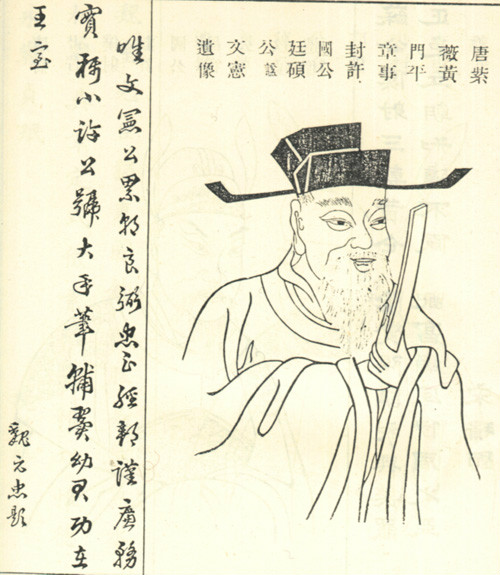 唐紫
薇黃
門平
章事
封許
國公
廷碩
公諡
文憲
遺像
唯文憲公累朝良弼忠經邦謹廣務
實稱小許公號大手筆輔翼幼君功在
王室
魏元忠題